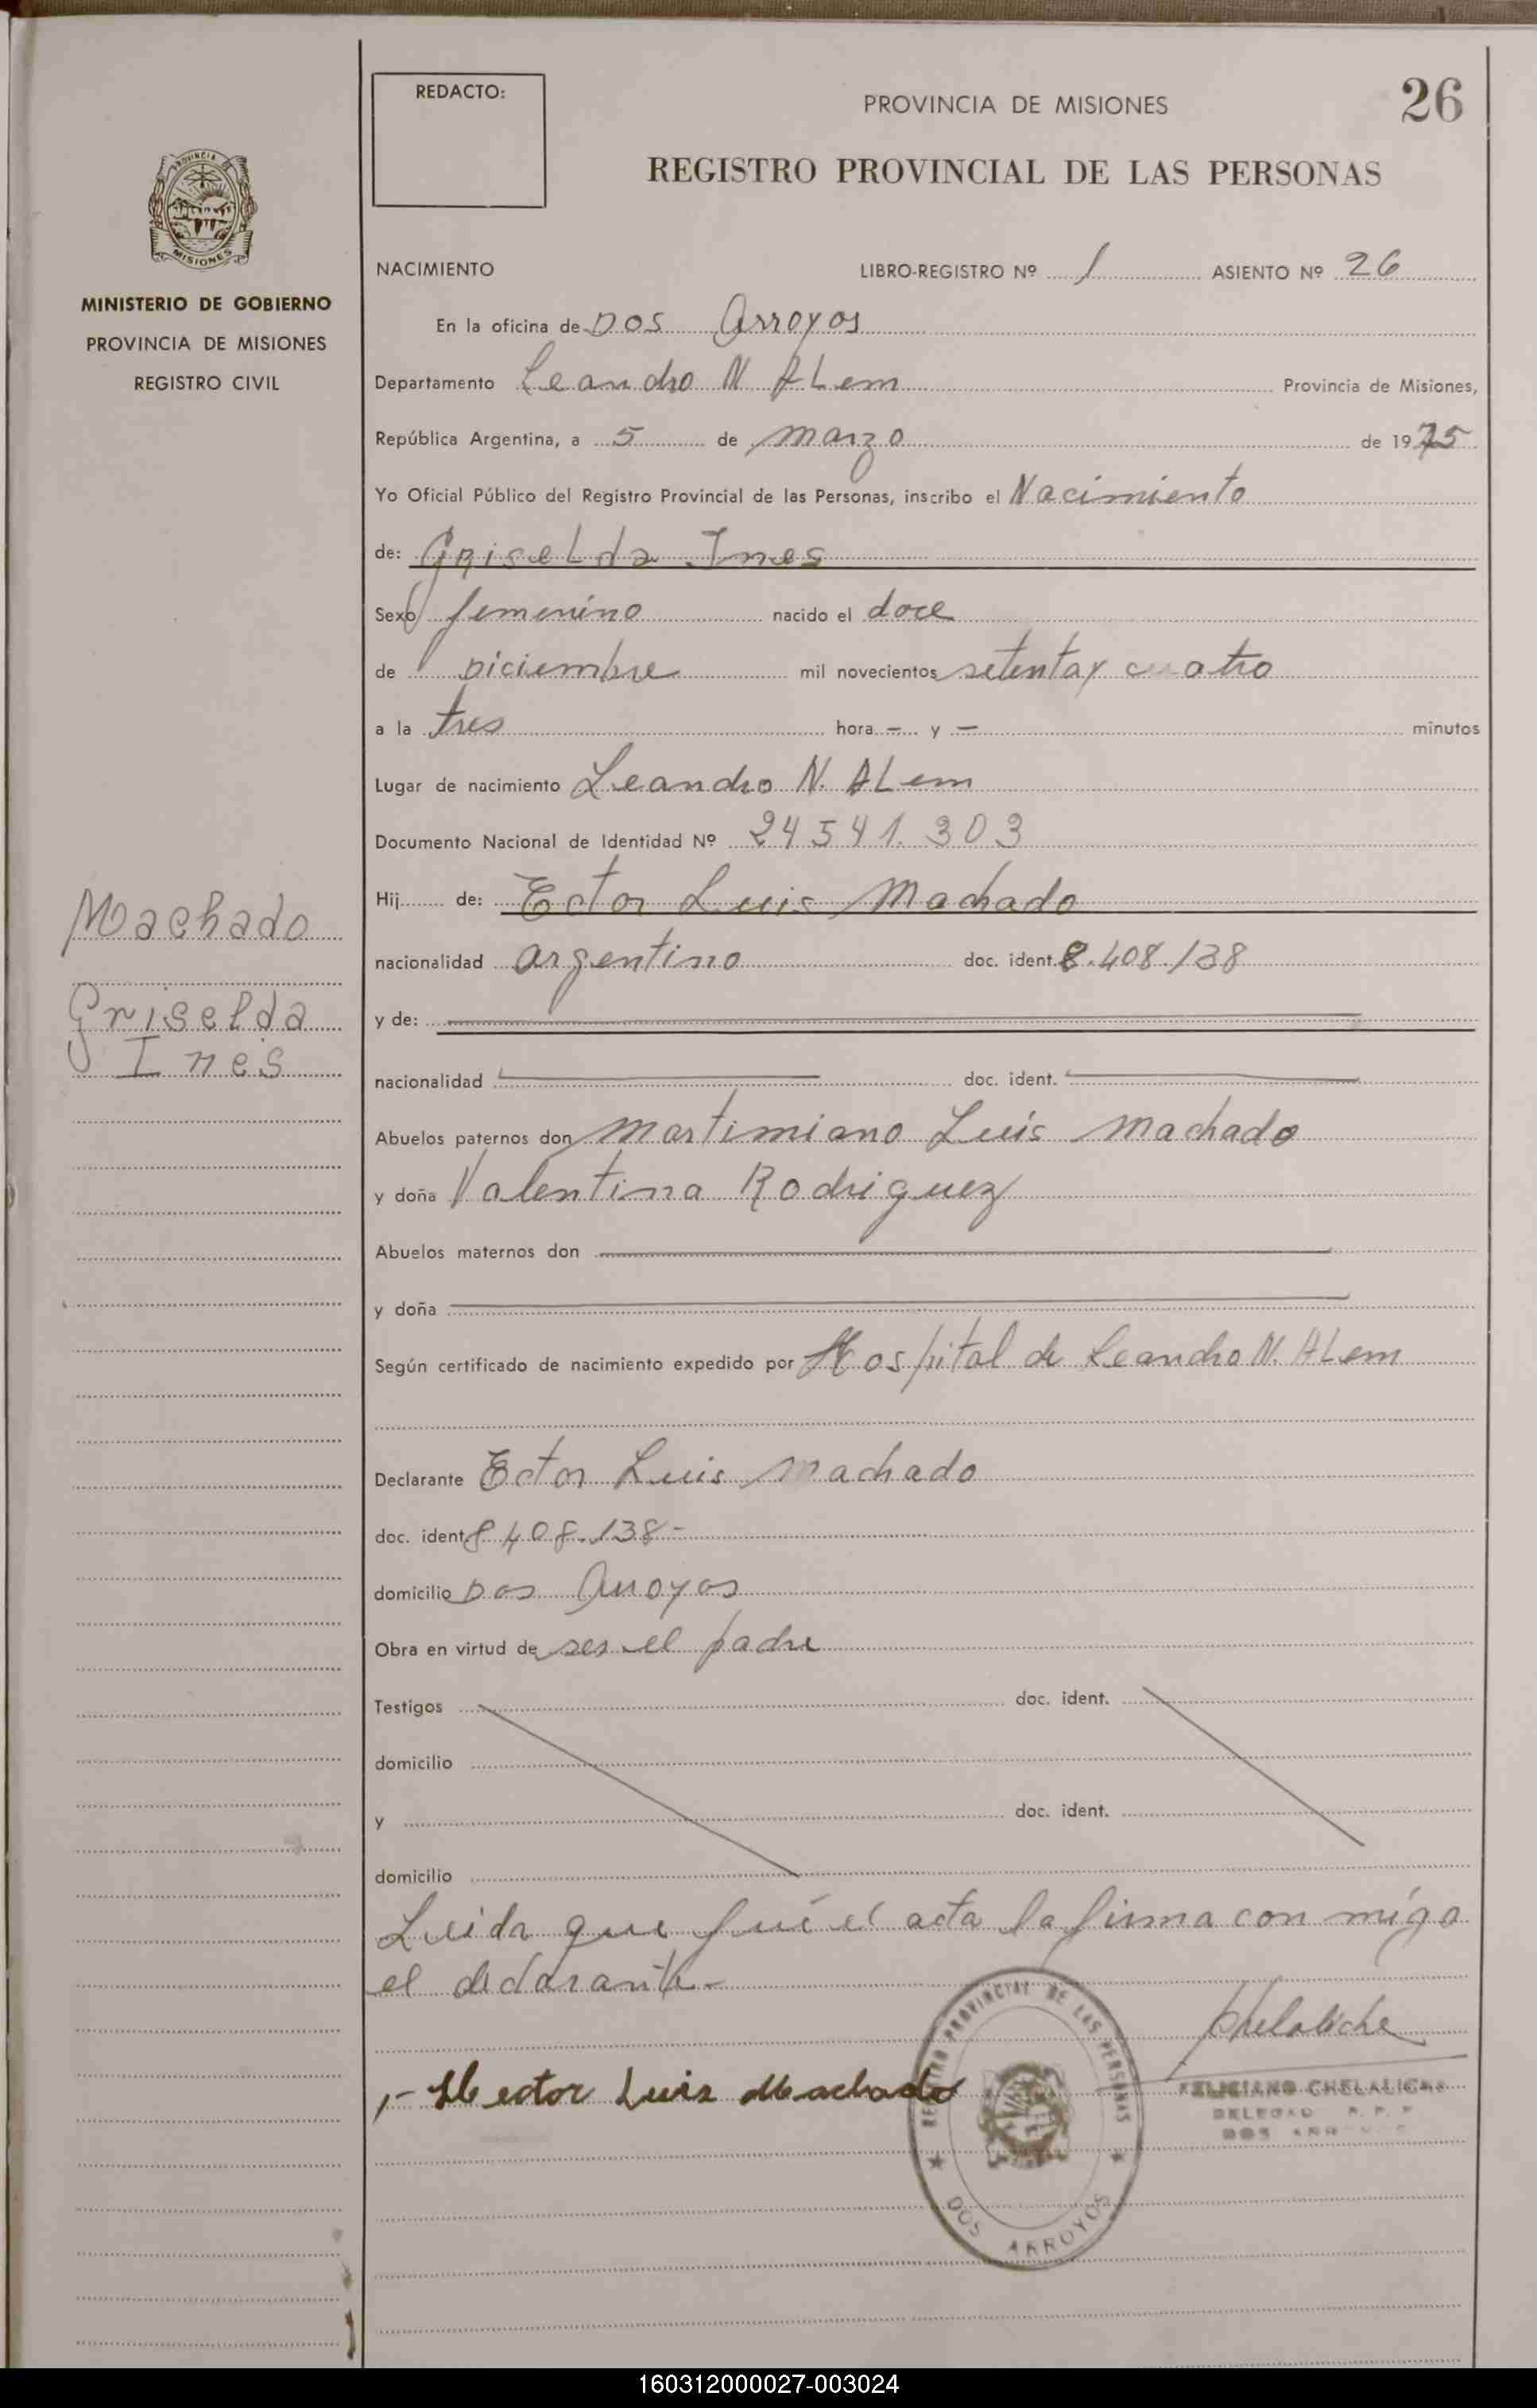 REDACTO:
PROVINCIA DE MISIONES
26
REGISTRO PROVINCIAL DE LAS PERSONAS
PROVINCIA DE
MISIONES
MINISTERIO DE GOBIERNO
PROVINCIA DE MISIONES
REGISTRO CIVIL
NACIMIENTO LIBRO-REGISTRO Nº 1 ASIENTO Nº 26
En la oficina de DOS Arroyos
Departamento Leandro N ALem Provincia de Misiones,
República Argentina, a 5 de marzo de 1975
Yo Oficial Público del Registro Provincial de las Personas, inscribo el Nacimiento
de: GriseLda Ines
Sexo femenino nacido el doce
de Diciembre mil novecientos setenta y cuatro
a la tres hora - y - minutos
Lugar de nacimiento Leandro N. ALem
Documento Nacional de Identidad Nº 24541.303
Hij de: Ector Luis Machado
nacionalidad argentino doc. ident. 8.408.138
y de:
nacionalidad doc. ident.
Abuelos paternos don Martimiano Luis Machado
y doña Valentina Rodriguez
Abuelos maternos don
y doña
Según certificado de nacimiento expedido por Hospital de Leandro N. ALem
Declarante Ector Luis Machado
doc. ident 8.408.138-
domicilio Dos Arroyos
Obra en virtud de ser el padre
Testigos doc. ident.
domicilio
y doc. ident.
domicilio
Leida que fué el acta la firma con migo
el declarante-
Machado
Griselda
Ines
Hector Luis Machado
Chelaliche
REGISTRO PROVINCIAL DE LAS PERSONAS
DOS ARROYOS
FELICIANO
160312000027-003024